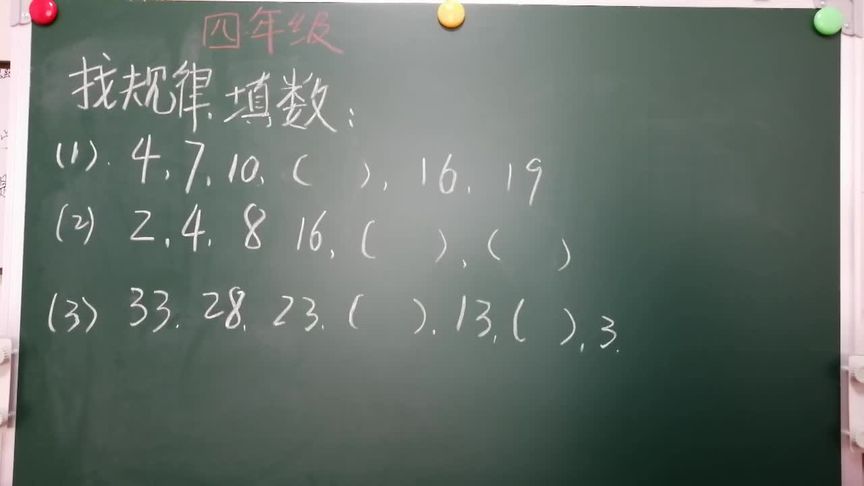 四年级
找规律填数:
(1). 4, 7, 10, ( ), 16, 19
(2) 2, 4, 8 16, ( ), ( )
(3) 33, 28, 23, ( ), 13, ( ), 3.